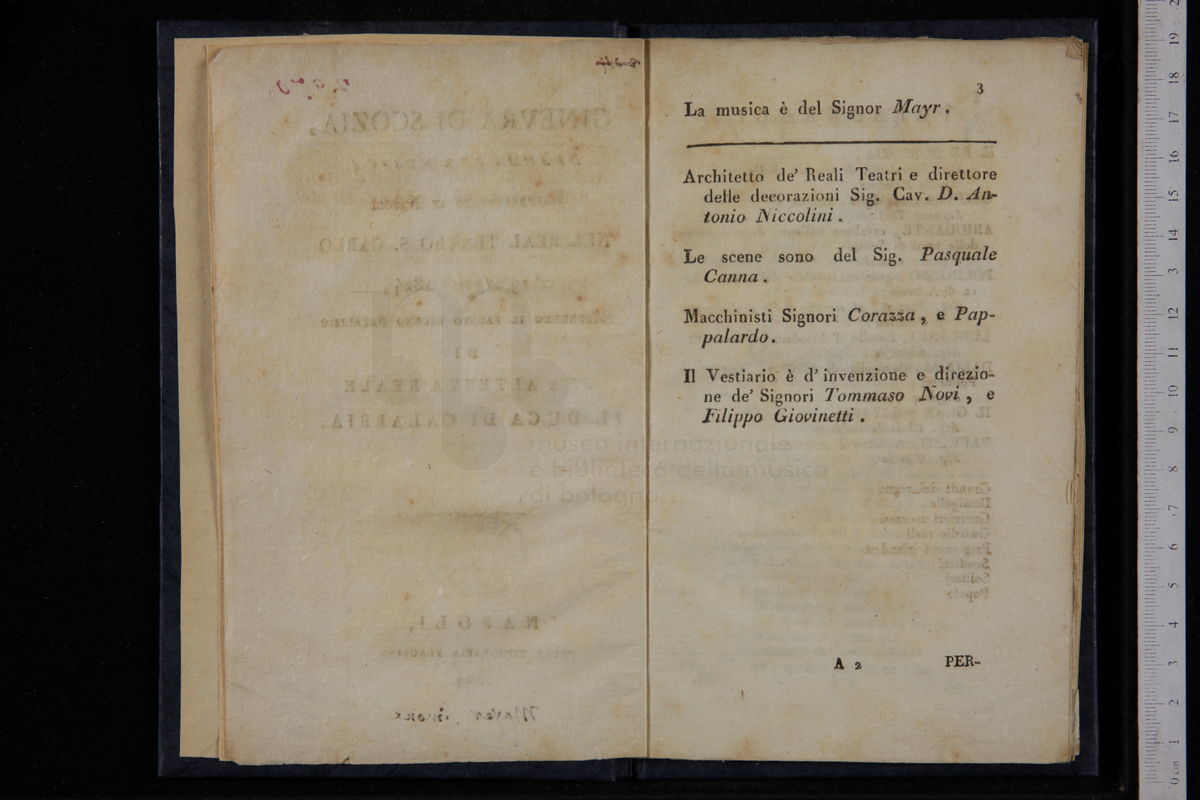 3
La musica è del Signor Mayr.
Architetto de' Reali Teatri e direttore
delle decorazioni Sig. Cav. D. An-
tonio Niccolini.
Le scene sono del Sig. Pasquale
Canna.
Macchinisti Signori Corazza, e Pap-
palardo.
Il Vestiario è d' invenzione e direzio-
ne de' Signori Tommaso Novi, e
Filippo Giovinetti.
A 2 PER-
museo internazionale
e biblioteca della musica
di bologna